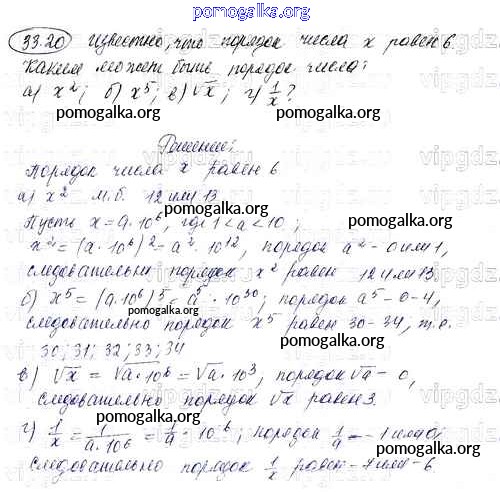 pomogalka.org
33.20 Известно, что порядок числа x равен 6.
Каким может быть порядок числа:
а) x²; б) x⁵; в) √x; г) 1/x?
pomogalka.org pomogalka.org
Решение:
Порядок числа x равен 6
а) x² м.б. 12 или 13
Пусть x = a·10⁶, где 1 < a < 10;
x² = (a·10⁶)² = a²·10¹², порядок a² – 0 или 1,
следовательно порядок x² равен 12 или 13.
б) x⁵ = (a·10⁶)⁵ = a⁵·10³⁰; порядок a⁵ – 0-4,
следовательно порядок x⁵ равен 30-34, т.е.
30; 31; 32; 33; 34
в) √x = √a·10⁶ = √a·10³, порядок √a – 0,
следовательно порядок √x равен 3.
г) 1/x = 1/a·10⁶ = 1/a·10⁻⁶; порядок 1/a – -1 или 0;
следовательно порядок 1/x равен -7 или -6.